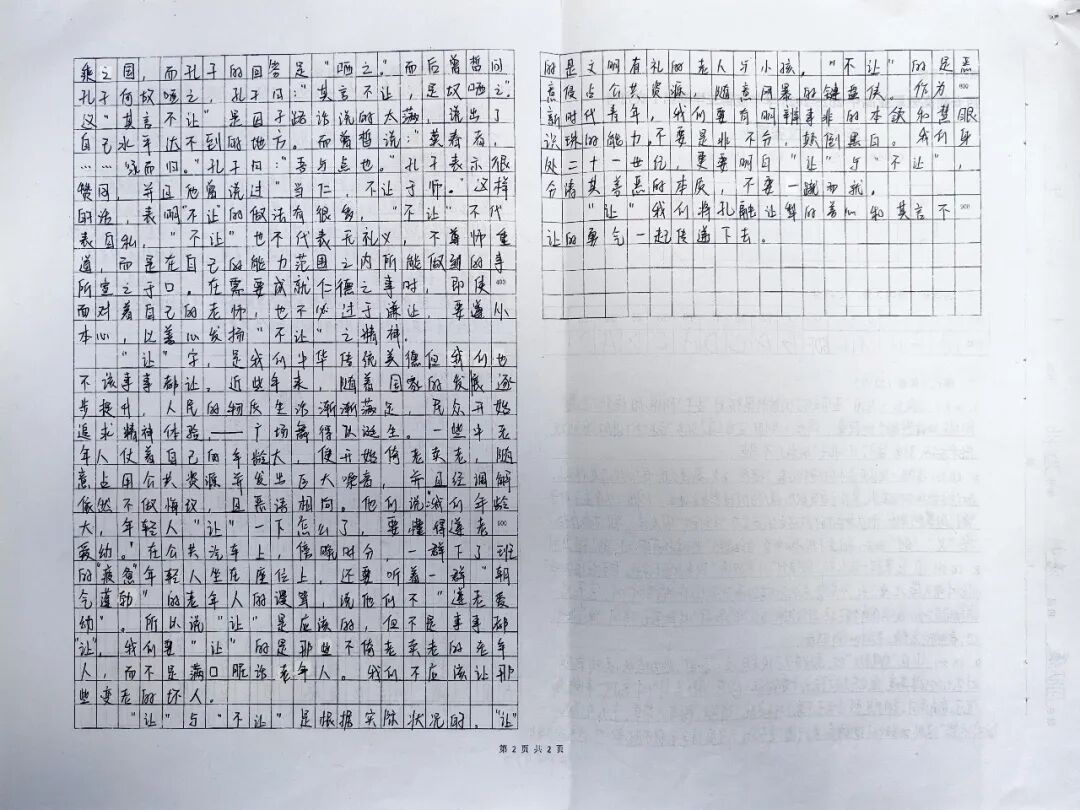 乘之国，而孔子的回答是“哂之”。而后曾皙问
孔子何故哂之，孔子曰：“其言不让，是故哂之。”
义“其言不让”是因子路诊说的太满，说出了
自己水平达不到的地方。而曾皙说：“莫春者，
……咏而归。”孔子曰：“吾与点也。”孔子表示很
赞同，并且他曾说过“当仁，不让于师。”这样
的话，表明“不让的做法有很多，“不让”不代
表自私，“不让”也不代表无礼义，不尊师重
道，而是在自己的能力范围之内所能做到的事
所宣之于口。在需要成就仁德之事时，即使
面对着自己的老师，也不必过于谦让，要遵从
本心，以善心发扬“不让”之精神。
“让”字，是我们中华传统美德但我们也
不该事事都让。近些年来，随着国家的发展逐
步提升，人民的物质生活渐渐满足，民众开始
追求精神体验，——广场舞得以诞生。一些中老
年人仗着自己的年龄大，便开始倚老卖老，随
意占用公共资源并发出巨大噪音，并且经调解
依然不做悔改，且恶语相向。他们说：“我们年龄
大，年轻人“让”一下怎么了，要懂得尊老
爱幼。”在公共汽车上，傍晚时分，一群下了班
的“疲惫”年轻人坐在座位上，还要听着一群“朝
气蓬勃”的老年人的谩骂，说他们不“尊老爱
幼”。所以说“让”是应该的，但不是事事都
“让”，我们要“让”的是那些不倚老卖老的老年
人，而不是满口脏话老年人。我们不应该让那
些变老的坏人。
“让”与“不让”是根据实际状况的，“让”
第 2 页 共 2 页
的是文明有礼的老人与小孩，“不让”的是恶
意侵占公共资源，随意网暴的键盘侠。作为
新时代青年，我们要有明辨事非的本领和慧眼
识珠的能力，不要是非不分，颠倒黑白。我们身
处二十一世纪，更要明白“让”与“不让”，
分清其善恶的本质，不要一蹴而就。
“让”我们将孔融让梨的善心和其言不
让的勇气一起传递下去。